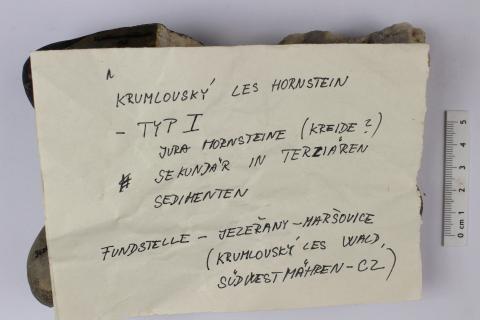 KRUMLOVSKÝ LES HORNSTEIN
- TYP I
JURA HORNSTEINE (KREIDE?)
# SEKUNDÄR IN TERZIÄREN
SEDIMENTEN
FUNDSTELLE - JEZEŘANY-MARŠOVICE
(KRUMLOVSKÝ LES WALD,
SÜDWESTMÄHREN-CZ)
0 cm 1 2 3 4 5